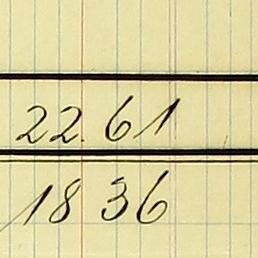 22.61
18 36